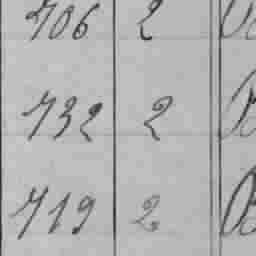 706 2
732 2
719 2